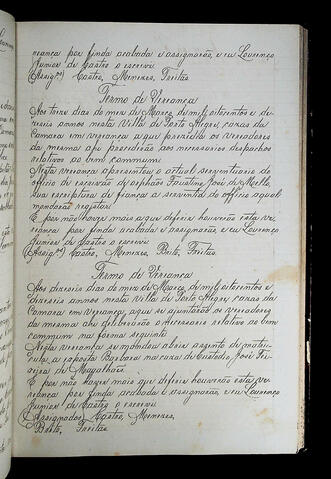 riança por finda acabada e assignarão, e eu Lourenço
Junior de Castro o escrevi
(Assigos) Castro, Menezes, Freitas
Termo de Veriança
Aos treze dias do mez de Março de mil e oitocentos e de-
zeseis annos nesta Villa de Porto Alegre, cazas da
Camara em veriança a que prezidio os vereadores
da mesma ahi procederão aos necessarios despachos
relativos ao bem commum.
Nesta veriança aprezentou o actual serventuario do
officio de escrivão de orphãos Faustino José de Mello,
sua escriptura de fiança a serventia do officio a qual
mandarão registar.
E por não haver mais a que deferir houverão esta ve-
riança por finda acabada e assignarão, e eu Lourenço
Junior de Castro o escrevi
(Assigos) Castro, Menezes, Brito, Freitas.
Termo de Veriança
Aos dezeseis dias do mez de Março de mil e oitocentos e
dezeseis annos nesta Villa de Porto Alegre, cazas da
Camara em veriança, a que se ajuntarão os vereadores
da mesma ahi deliberarão o necessario relativo ao bem
commum na forma seguinte
Nesta veriança se mandou abrir assento de matri-
cula, a exposta Barbara na caza de Custodio José Tei-
xeira de Magalhães.
E por não haver mais que deferir houverão esta ve-
riança por finda acabada e assignarão, e eu Lourenço
Junior de Castro o escrevi
(Assignados) Castro, Menezes,
Brito, Freitas